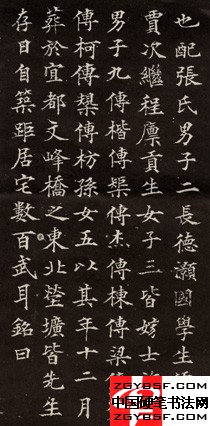 也配張氏男子二長德灝國學生
賈次繼程廪貢生女子三皆娉士
男子九傳楷傳榘傳杰傳棟傳梁
傳柯傳槼傳枋孫女五以其年十二月
葬於宜都文峰橋之東北塋壙皆先生
存日自築距居宅數百武耳銘曰
ZGYBSF.COM
中国硬笔书法网
ZGYBSF.COM